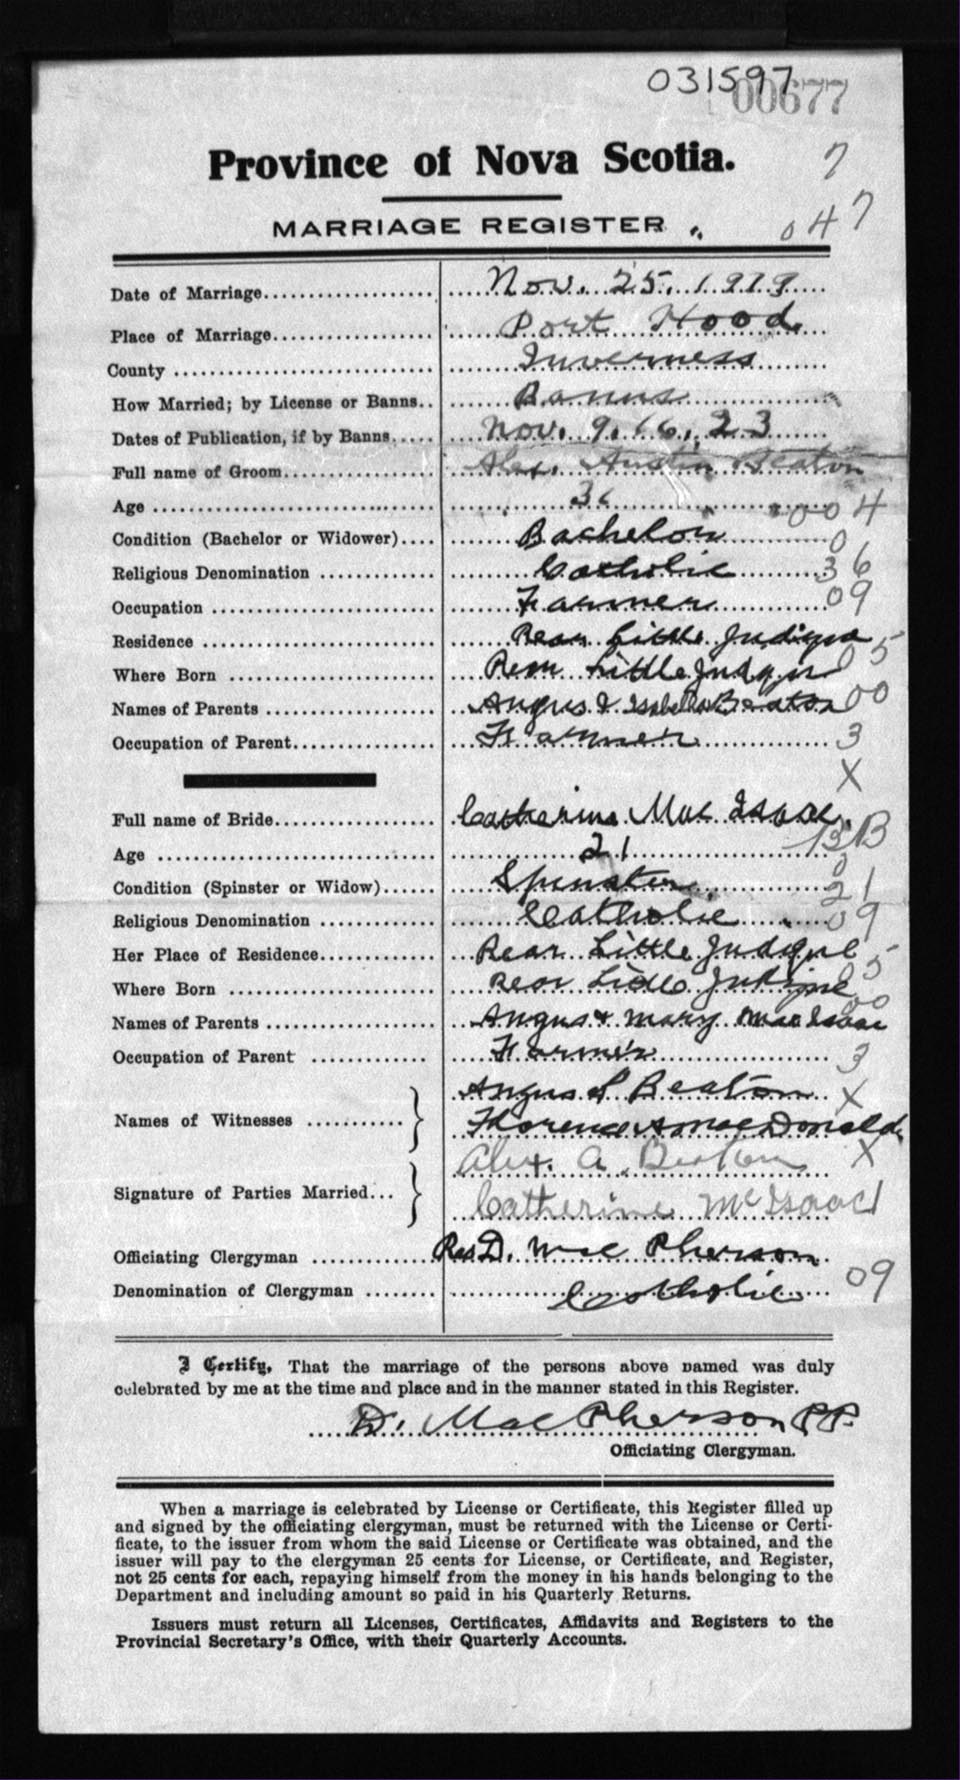 031597
00677
Province of Nova Scotia.
7
MARRIAGE REGISTER
047
Date of Marriage Nov. 25, 1919
Place of Marriage Port Hood
County Inverness
How Married; by License or Banns Banns
Dates of Publication, if by Banns Nov. 9, 16, 23
Full name of Groom Alex. Austin Beaton
Age 36 004
Condition (Bachelor or Widower) Bachelor 0
Religious Denomination Catholic 36
Occupation Farmer 09
Residence Rear Little Judique
Where Born Rear Little Judique 05
Names of Parents Angus & Isabella Beaton 00
Occupation of Parent Farmer 3
X
Full name of Bride Catherine Mac Isaac
Age 21
Condition (Spinster or Widow) Spinster 21
Religious Denomination Catholic 09
Her Place of Residence Rear Little Judique
Where Born Rear Little Judique 05
Names of Parents Angus & Mary MacIsaac 00
Occupation of Parent Farmer 3
Names of Witnesses Angus L Beaton X
Florence A MacDonald
Signature of Parties Married Alex. A. Beaton X
Catherine McIsaac
Officiating Clergyman Rev D. MacPherson
Denomination of Clergyman Catholic 09
I Certify, That the marriage of the persons above named was duly
celebrated by me at the time and place and in the manner stated in this Register.
D. MacPherson P.P.
Officiating Clergyman.
When a marriage is celebrated by License or Certificate, this Register filled up
and signed by the officiating clergyman, must be returned with the License or Certi-
ficate, to the issuer from whom the said License or Certificate was obtained, and the
issuer will pay to the clergyman 25 cents for License, or Certificate, and Register,
not 25 cents for each, repaying himself from the money in his hands belonging to the
Department and including amount so paid in his Quarterly Returns.
Issuers must return all Licenses, Certificates, Affidavits and Registers to the
Provincial Secretary's Office, with their Quarterly Accounts.